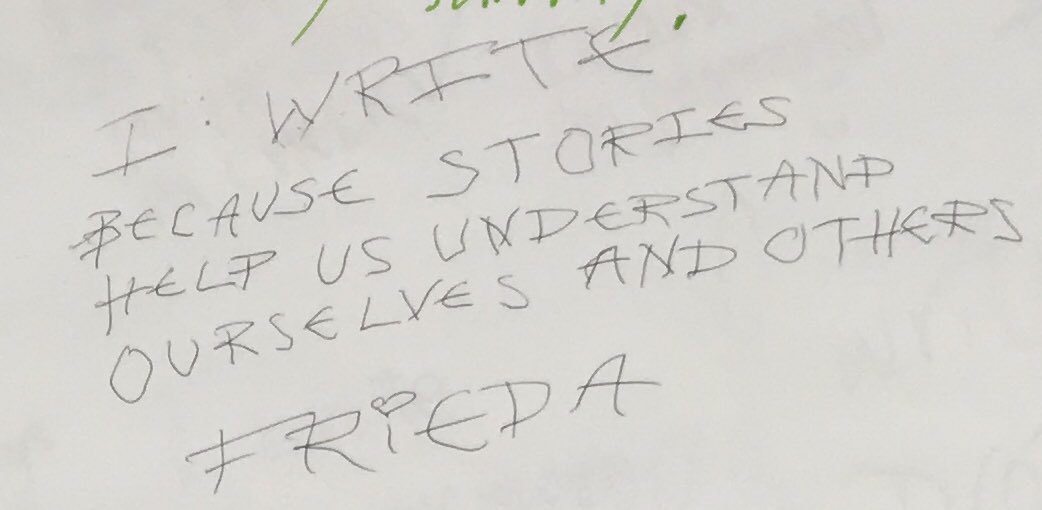 I WRITE
BECAUSE STORIES
HELP US UNDERSTAND
OURSELVES AND OTHERS
FRiEDA